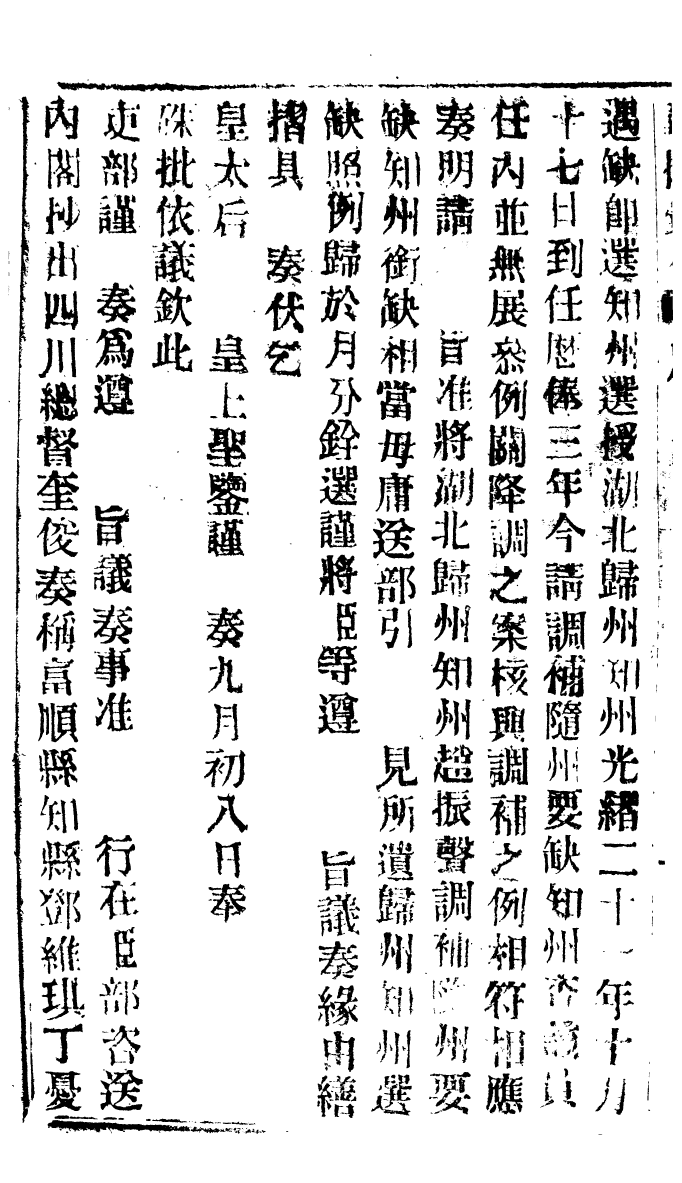 遇缺卽選知州選授湖北歸州知州光緖二十一年十月
十七日到任歷俸三年今請調補隨州要缺知州查該員
任內並無展叅例關降調之案核與調補之例相符相應
奏明請　　旨准將湖北歸州知州趙振聲調補隨州要
缺知州銜缺相當毋庸送部引　　見所遺歸州知州選
缺照例歸於月分銓選謹將臣等遵　　旨議奏緣由繕
摺具　奏伏乞
皇太后　　皇上聖鑒謹　奏九月初八日奉
硃批依議欽此
吏部謹　奏爲遵　　旨議奏事准　　行在臣部咨送
內閣抄出四川總督奎俊奏稱富順縣知縣鄧維琪丁憂